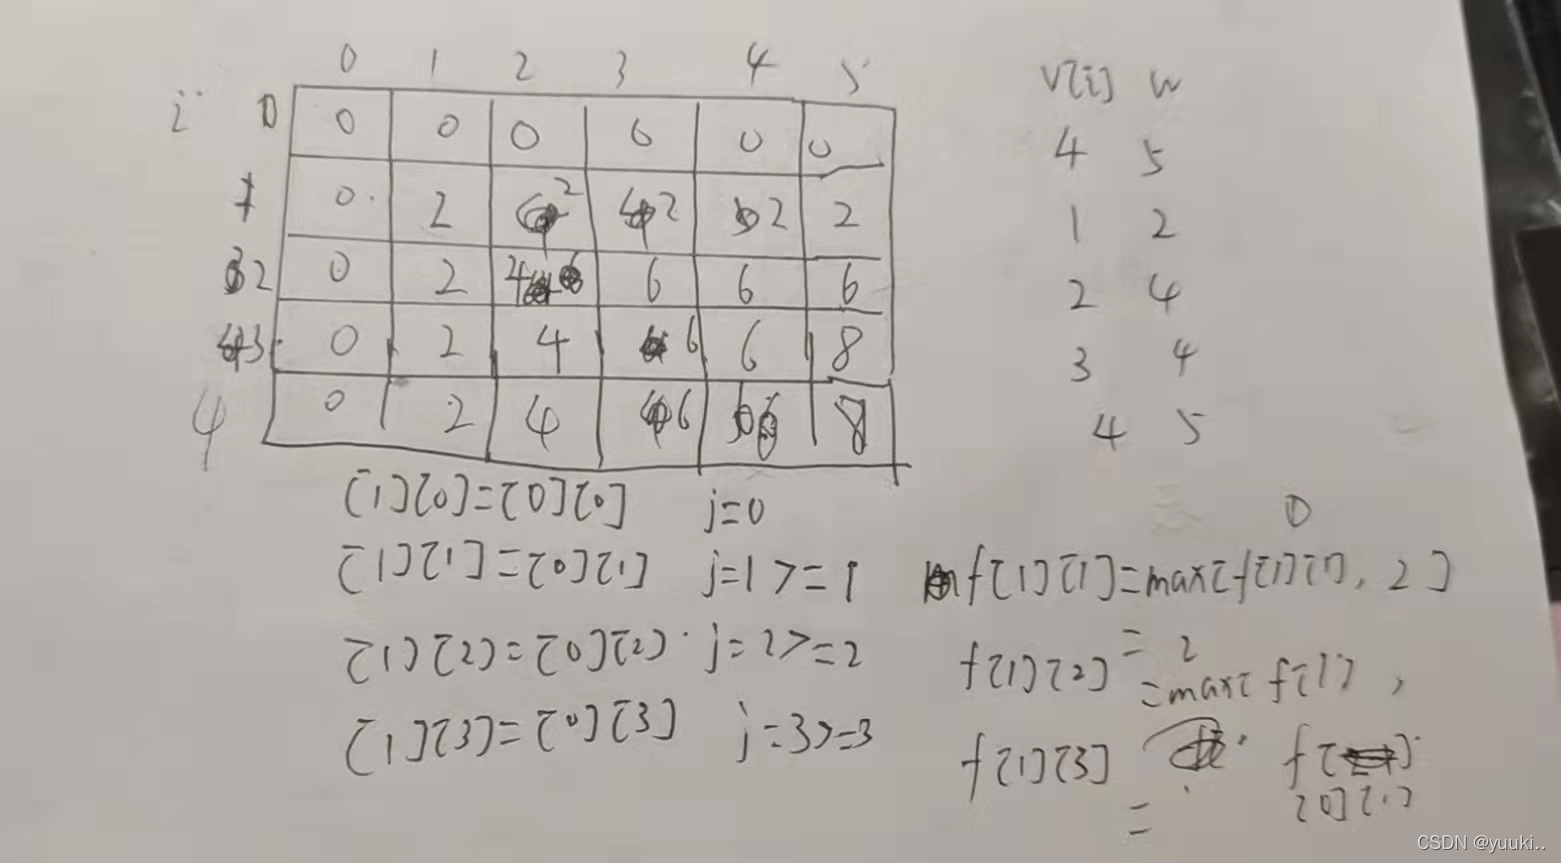 0 1 2 3 4 5
i 0 0 0 0 0 0 0
1 0 2 2 2 2 2
2 0 2 4 6 6 6
3 0 2 4 6 6 8
4 0 2 4 6 6 8
V[i] w
4 5
1 2
2 4
3 4
4 5
[1][0]=[0][0] j=0
[1][1]=[0][1] j=1>=1
[1][2]=[0][2] j=2>=2
[1][3]=[0][3] j=3>=3
0
f[1][1]=max[f[1][1], 2]
= 2
f[1][2]
=max[f[1],
f[1][3]
=
f[
[0][1]
CSDN @yuuki..